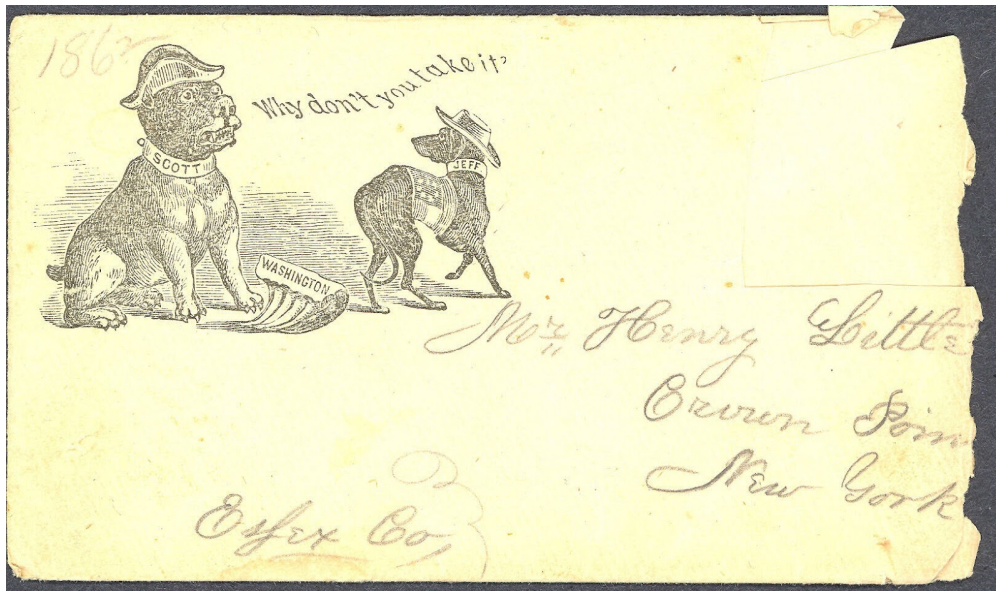 1862
Why don't you take it?
SCOTT
JEFF
WASHINGTON
Mr. Henry Little
Crown Poin
New York
Essex Co,